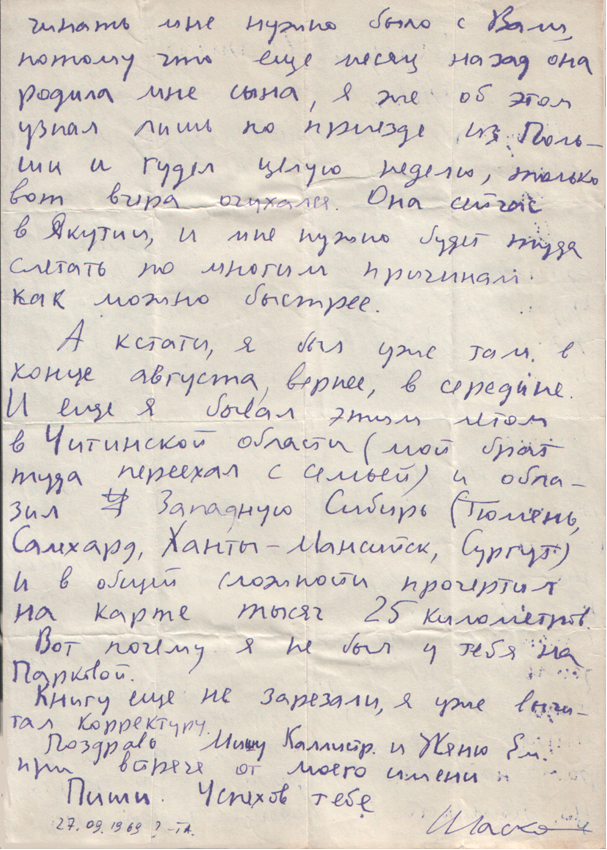 чинать мне нужно было с Вали,
потому что еще месяц назад она
родила мне сына, я же об этом
узнал лишь по приезде из Поль-
ши и гудел целую неделю, только
вот вчера очухался. Она сейчас
в Якутии, и мне нужно будет туда
слетать по многим причинам
как можно быстрее.
А кстати, я был уже там в
конце августа, вернее, в середине.
И еще я бывал этим летом
в Читинской области (мой брат
туда переехал с семьей) и обла-
зил Западную Сибирь (Тюмень,
Салхард, Ханты-Мансийск, Сургут)
и в общей сложности прочертил
на карте тысяч 25 километров.
Вот почему я не был у тебя на
Парковой.
Книгу еще не зарезали, я уже вычи-
тал корректуру.
Поздравь Мишу Каллистр. и Женю Ем.
при встрече от моего имени
Пиши. Успехов тебе
27.09.1969 г.